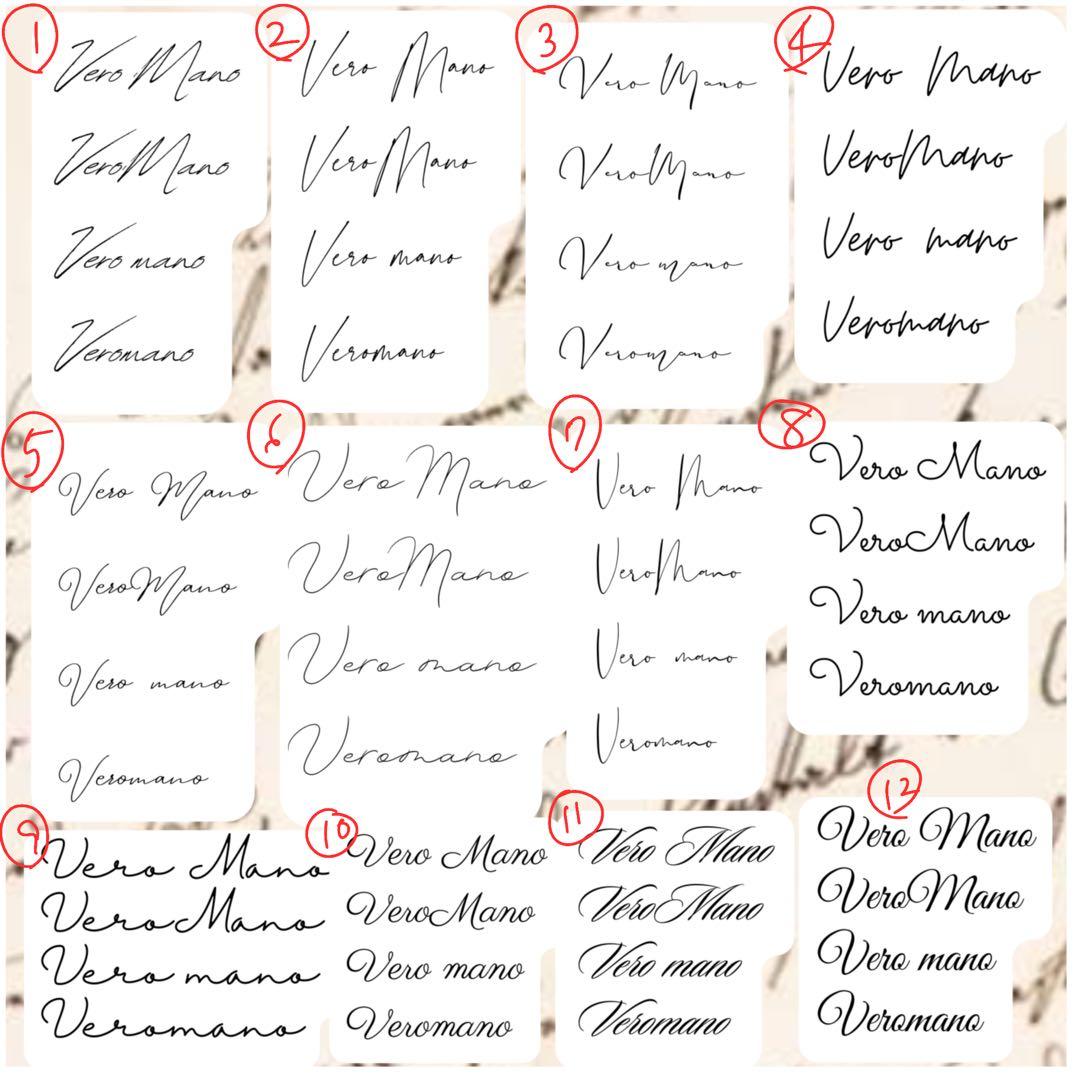 1
Vero Mano
VeroMano
Vero mano
Veromano
2
Vero Mano
VeroMano
Vero mano
Veromano
3
Vero Mano
VeroMano
Vero mano
Veromano
4
Vero Mano
VeroMano
Vero mano
Veromano
5
Vero Mano
VeroMano
Vero mano
Veromano
6
Vero Mano
VeroMano
Vero mano
Veromano
7
Vero Mano
VeroMano
Vero mano
Veromano
8
Vero Mano
VeroMano
Vero mano
Veromano
9
Vero Mano
VeroMano
Vero mano
Veromano
10
Vero Mano
VeroMano
Vero mano
Veromano
11
Vero Mano
VeroMano
Vero mano
Veromano
12
Vero Mano
VeroMano
Vero mano
Veromano